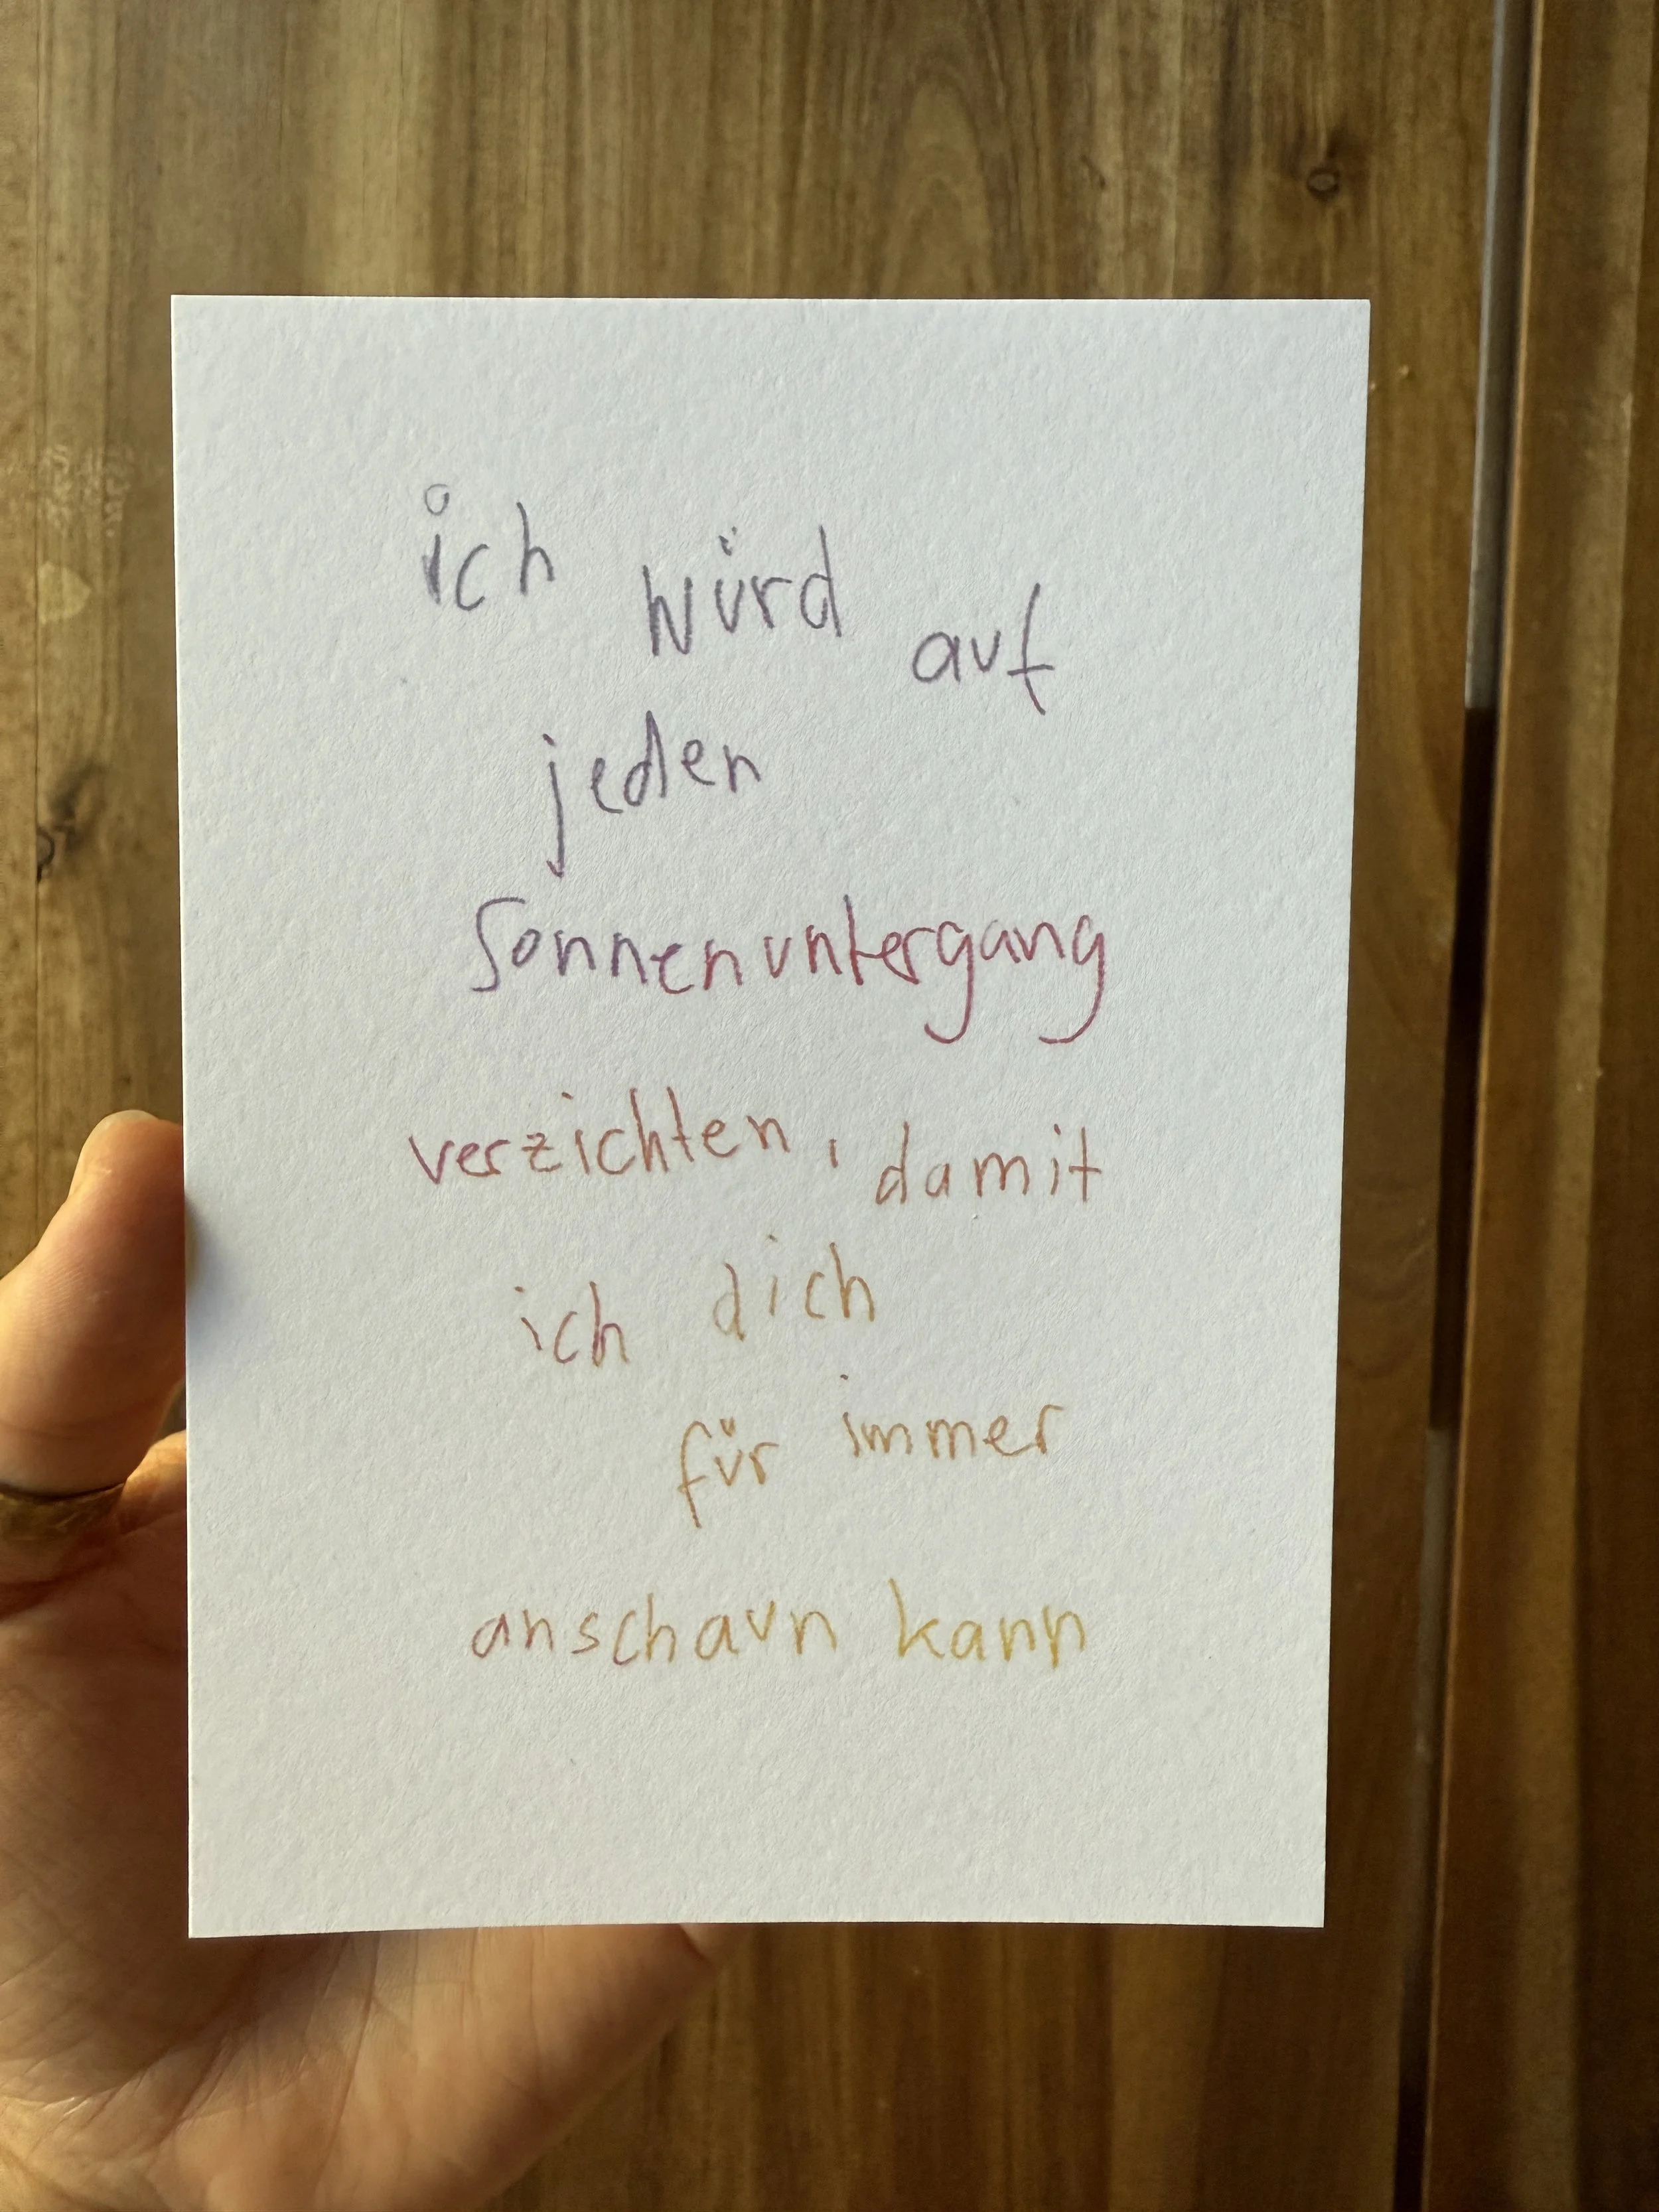 ich würd auf
jeden
Sonnenuntergang
verzichten, damit
ich dich
für immer
anschaun kann